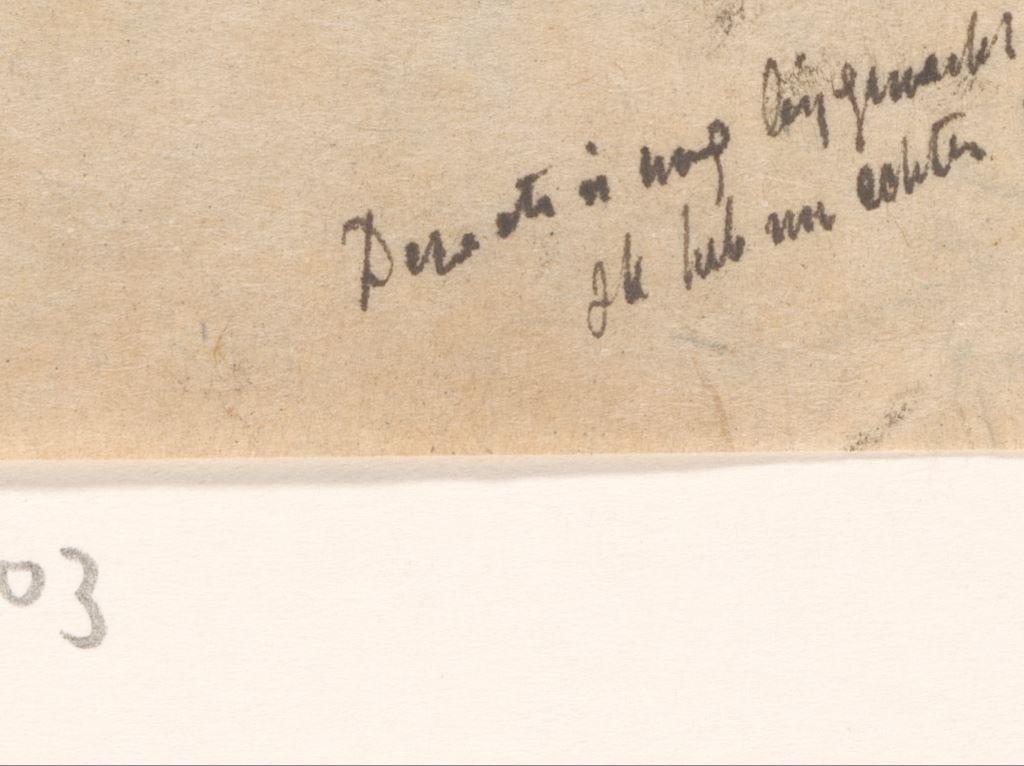 Deze ets is nog bijgewerkt
Ik heb nu echter
03